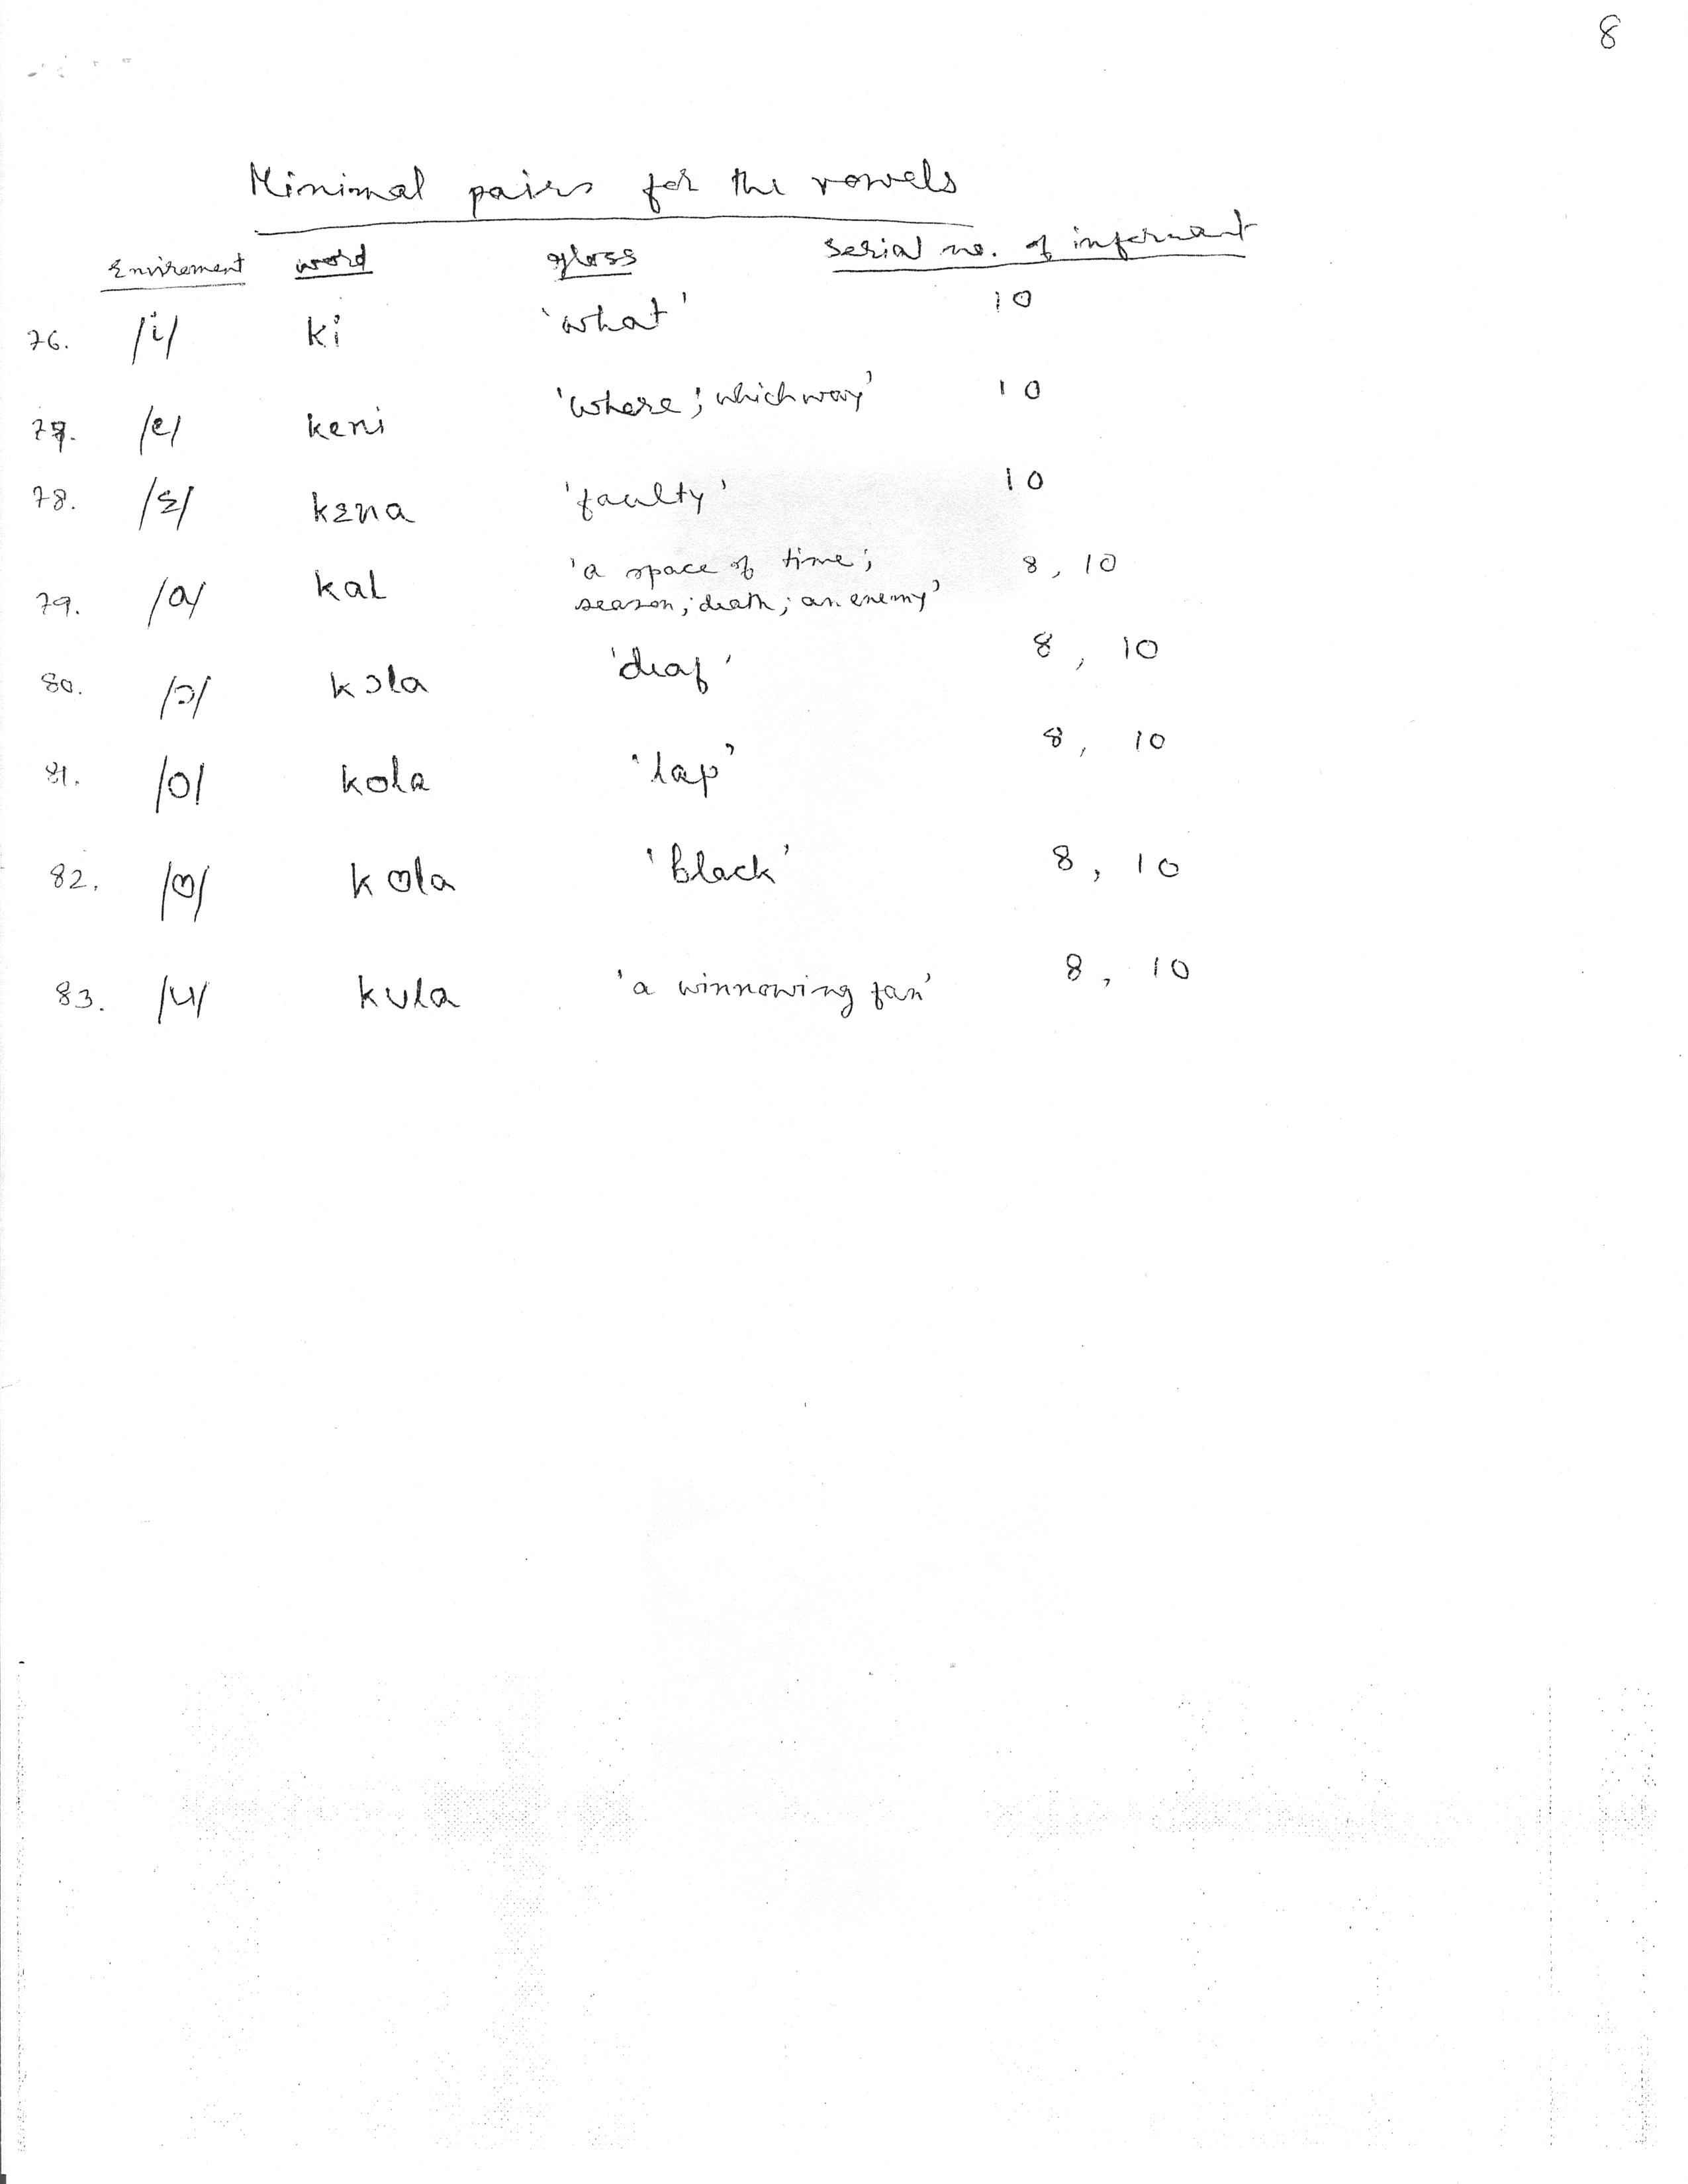 8
Minimal pairs for the vowels
Enviroment word gloss Serial no. of informant
76. /i/ ki 'what' 10
77. /e/ keni 'where; which way' 10
78. /ɛ/ kɛna 'faulty' 10
79. /a/ kal 'a space of time; 8, 10
season; death; an enemy'
80. /ɔ/ kɔla 'deaf' 8, 10
81. /o/ kola 'lap' 8, 10
82. /ʘ/ kʘla 'black' 8, 10
83. /u/ kula 'a winnowing fan' 8, 10